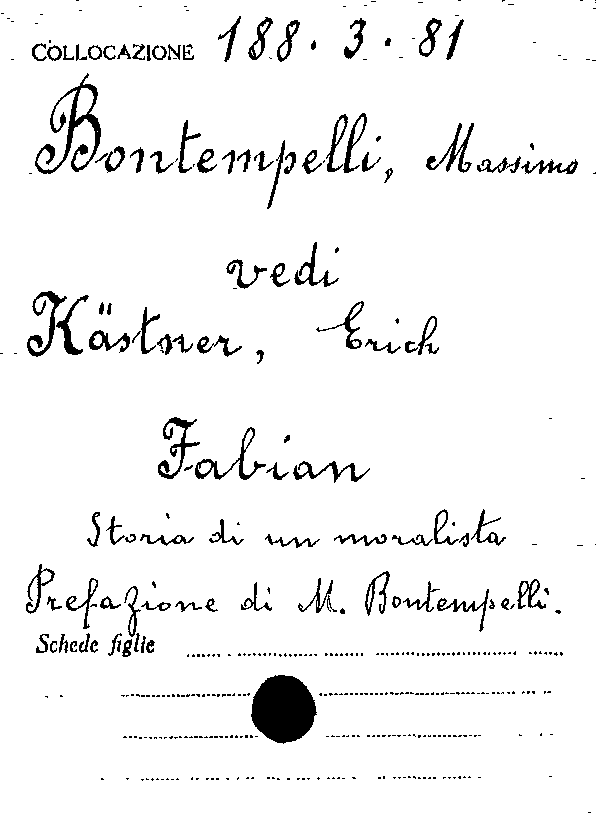 COLLOCAZIONE 188.3.81
Bontempelli, Massimo
vedi
Kästner, Erich
Fabian
Storia di un moralista
Prefazione di M. Bontempelli.
Schede figlie